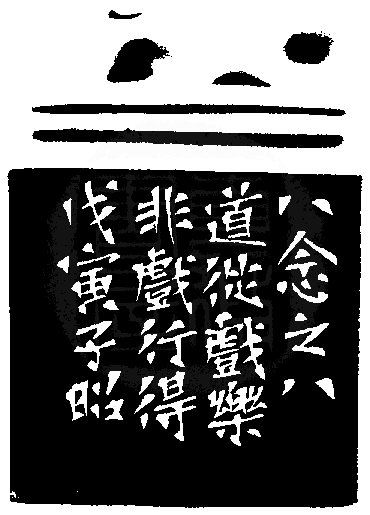 八念之八
道從戲樂
非戲行得
戊寅子昭